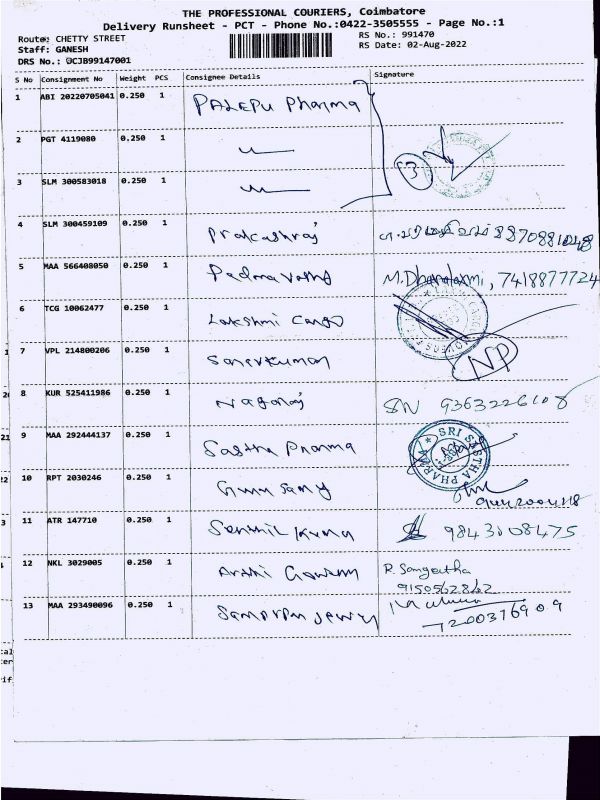 THE PROFESSIONAL COURIERS, Coimbatore
Delivery Runsheet - PCT - Phone No.:0422-3505555 - Page No.:1
Route: CHETTY STREET
RS No.: 991470
Staff: GANESH
RS Date: 02-Aug-2022
DRS No.: UCJB99147001
S No Consignment No Weight PCS Consignee Details Signature
1 ABI 20220705041 0.250 1 PALEPU Pharma
2 PGT 4119080 0.250 1
3 SLM 300583018 0.250 1 3
4 SLM 300459109 0.250 1 Prakashraj
5 MAA 566408050 0.250 1 Padmavathy M. Dhanalaxmi, 7418877724
6 TCG 10062477 0.250 1 Lakshmi Cargo
7 VPL 214800206 0.250 1 NP
8 KUR 525411986 0.250 1 Nagaraj SN 9363226108
9 MAA 292444137 0.250 1 Sastha Pharma SRI SASTHA PHARMA
10 RPT 2030246 0.250 1 Guru Samy
11 ATR 147710 0.250 1 Senthil Kuma 9843108475
12 NKL 3029005 0.250 1 R. Sangeetha
9150562862
13 MAA 293490096 0.250 1 7200376909